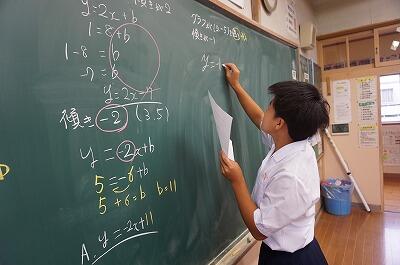 y=2x+b
1=8+b
1-8=b
-7=b
y=2x-7
傾き -2 (3,5)
y=-2x+b
5=-6+b
5+6=b b=11
A. y=-2x+11
傾き-1
y=-